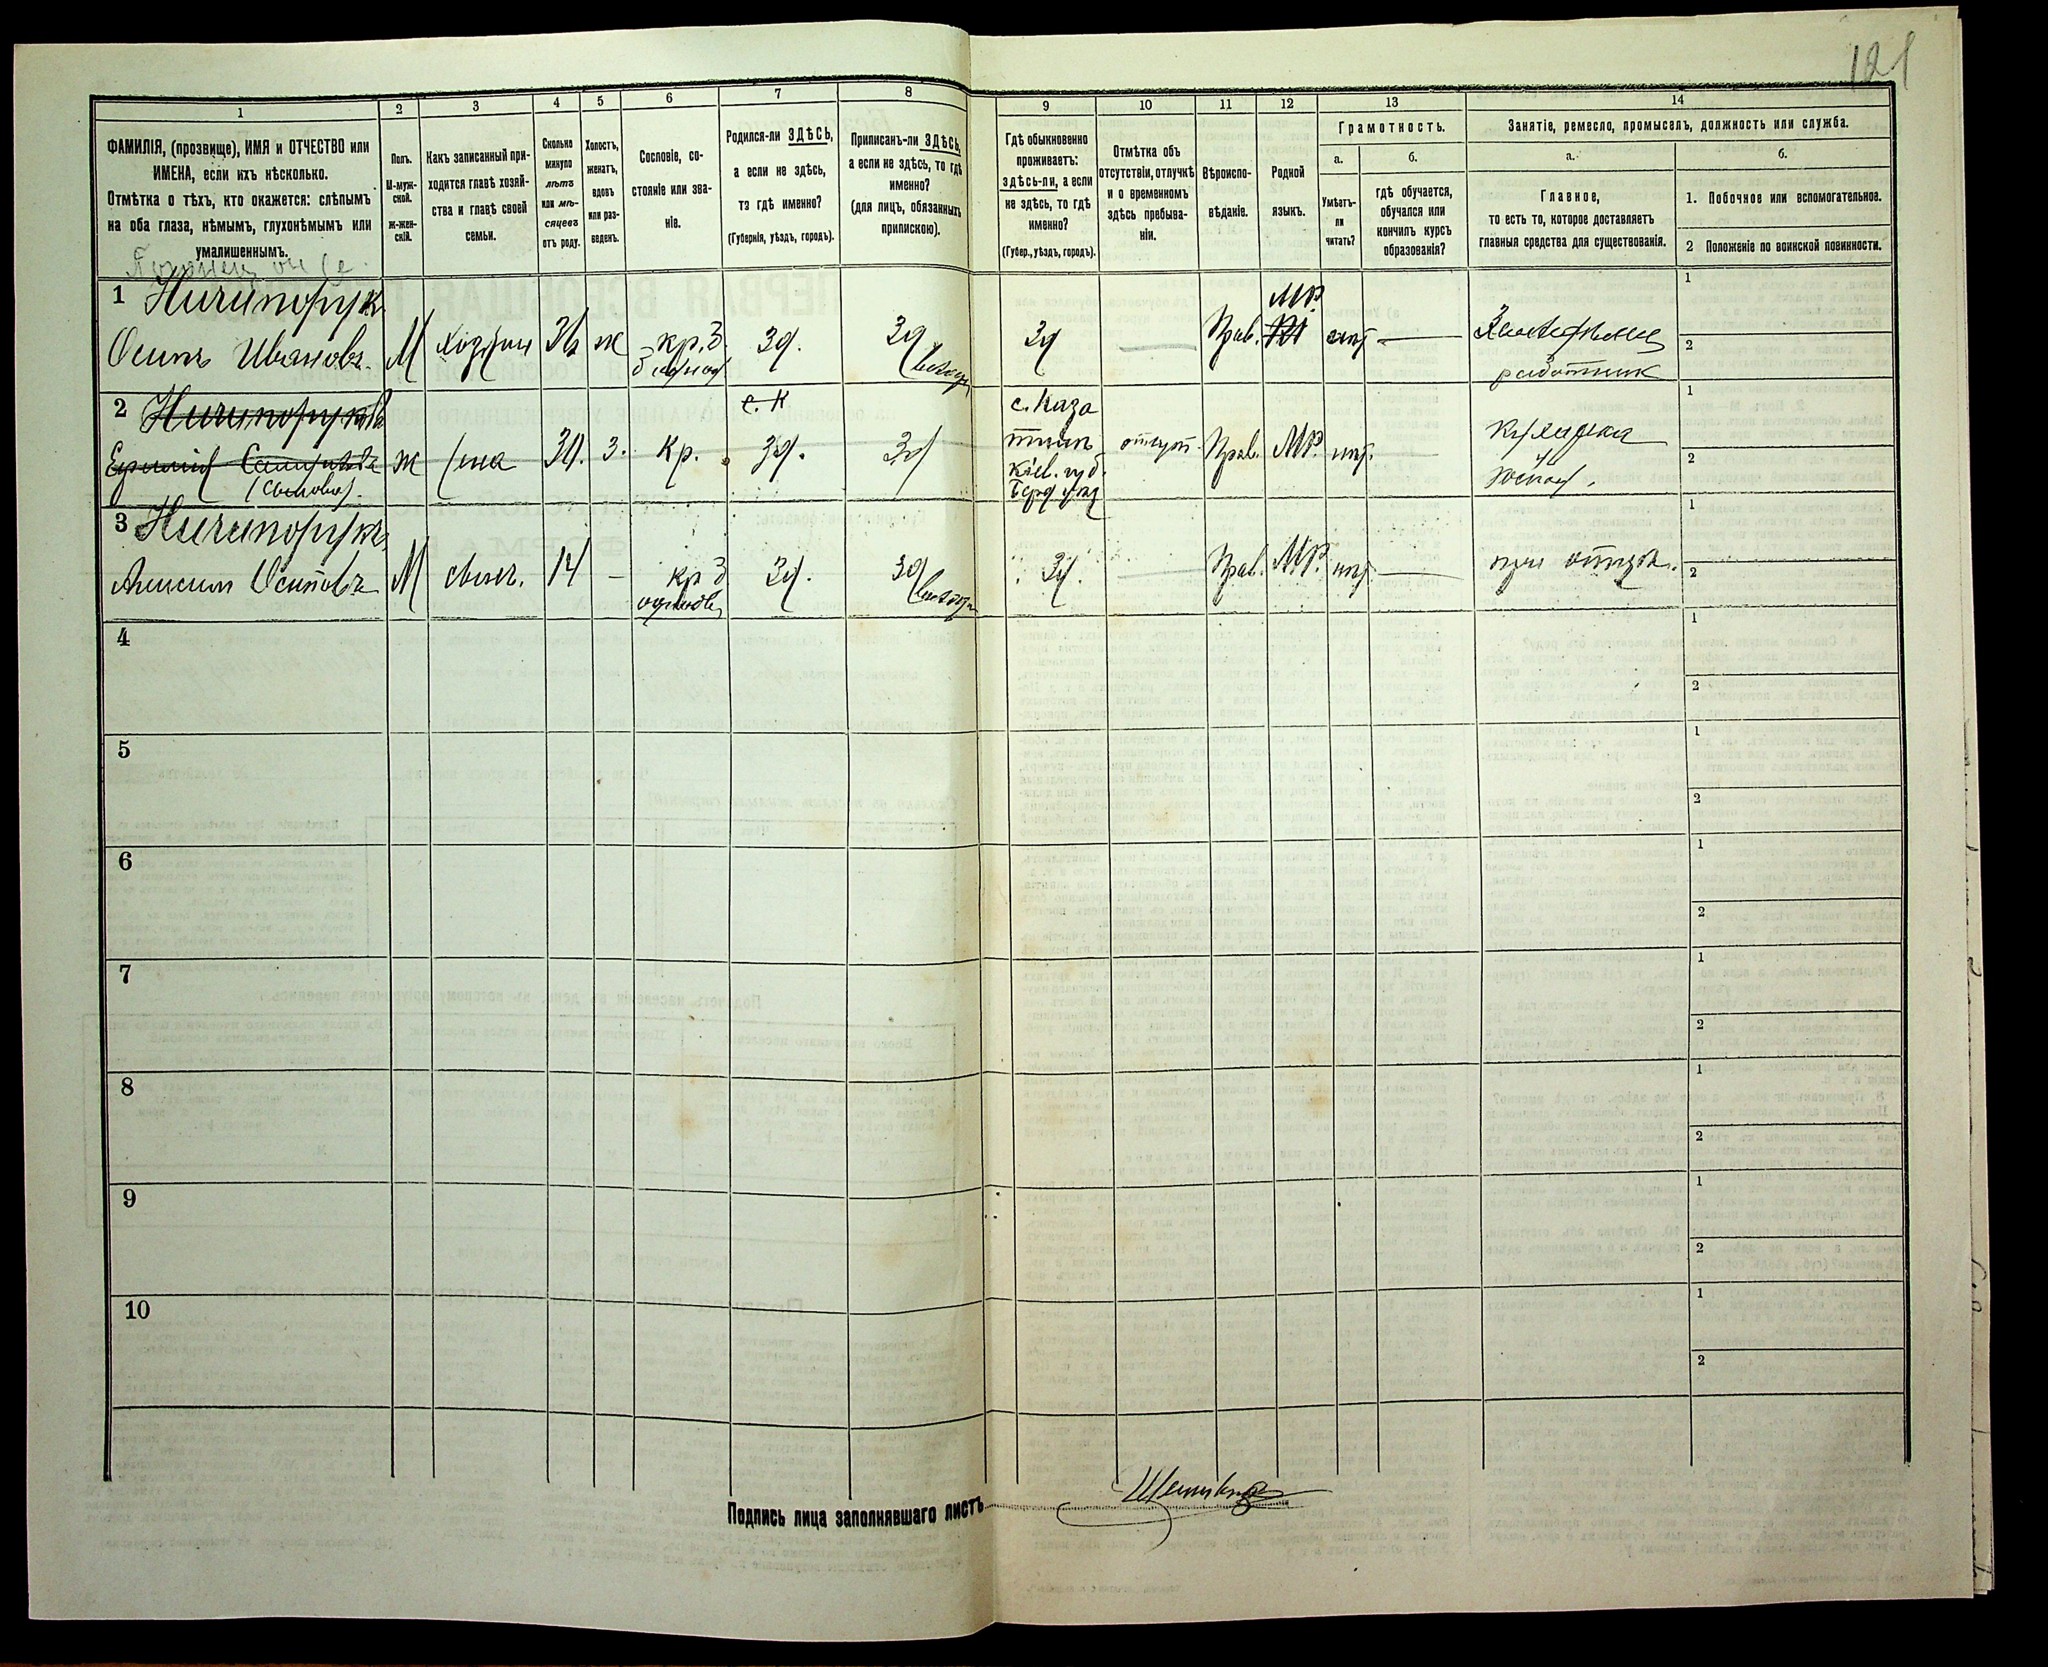 121
1
2
3
4
5
6
7
8
9
10
11
12
13
14
ФАМИЛІЯ, (прозвище), ИМЯ и ОТЧЕСТВО или
ИМЕНА, если ихъ нѣсколько.
Отмѣтка о тѣхъ, кто окажется: слѣпымъ
на оба глаза, нѣмымъ, глухонѣмымъ или
умалишеннымъ.
Полъ.
М-муж-
ской.
ж-жен-
скій.
Какъ записанный при-
ходится главѣ хозяй-
ства и главѣ своей
семьи.
Сколько
минуло
лѣтъ
или мѣ-
сяцевъ
отъ роду.
Холостъ,
женатъ,
вдовъ
или раз-
веденъ.
Сословіе, со-
стояніе или зва-
ніе.
Родился-ли ЗДѢСЬ,
а если не здѣсь,
то гдѣ именно?
(Губернія, уѣздъ, городъ).
Приписанъ-ли ЗДѢСЬ,
а если не здѣсь, то гдѣ
именно?
(для лицъ, обязанныхъ
припискою).
Гдѣ обыкновенно
проживаетъ:
здѣсь-ли, а если
не здѣсь, то гдѣ
именно?
(Губер., уѣздъ, городъ).
Отмѣтка объ
отсутствіи, отлучкѣ
и о временномъ
здѣсь пребыва-
ніи.
Вѣроиспо-
вѣданіе.
Родной
языкъ.
Грамотность.
а.
Умѣетъ-
ли
читать?
б.
гдѣ обучается,
обучался или
кончилъ курсъ
образованія?
Занятіе, ремесло, промыселъ, должность или служба.
а.
Главное,
то есть то, которое доставляетъ
главныя средства для существованія.
б.
1. Побочное или вспомогательное.
2 Положеніе по воинской повинности.
1 Ничипорук
Осипъ Ивановъ
М
хозяин
36
ж
кр. З
зд.
зд
зд
Прав.
МР.
нѣт
работник
1
2
2 Ничипорукова
ж
жена
30.
з.
кр.
с. К
зд.
зд
с. Каза
тинъ
Кіев. губ.
Берд уѣзд
отсут.
Прав.
МР.
нѣт.
1
2
3 Ничипорукъ
Осиповъ
М
сынъ.
14
кр З
зд.
зд
зд.
Прав.
МР.
нѣт.
при отцѣ.
1
2
4
1
2
5
1
2
6
1
2
7
1
2
8
1
2
9
1
2
10
1
2
Подпись лица заполнявшаго листъ